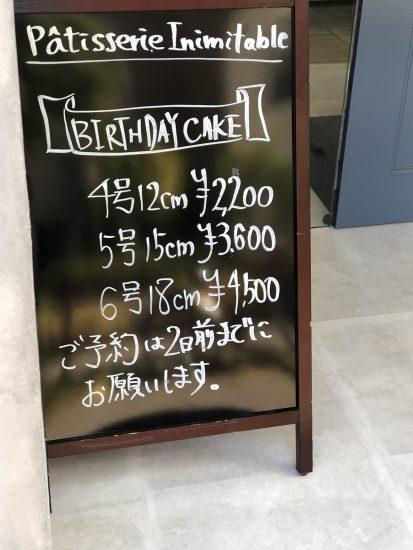 Pâtisserie Inimitable
BIRTHDAY CAKE
4号12cm ¥2,200
5号15cm ¥3,600
6号18cm ¥4,500
ご予約は2日前までに
お願いします。